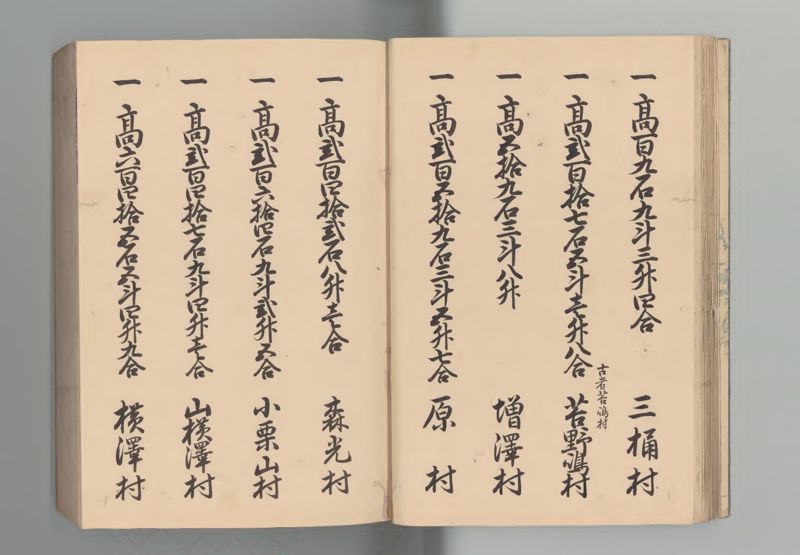 一 高百九石九斗三升四合 三桶村
一 高弐百拾七石五斗壱升八合 苔野嶋村
古者苔嶋村
一 高五拾九石三斗八升 増澤村
一 高弐百五拾九石三斗五升七合 原村
一 高弐百四拾弐石八升壱合 森光村
一 高弐百六拾四石九斗弐升五合 小栗山村
一 高弐百四拾七石九斗四升壱合 山横澤村
一 高六百四拾五石五斗四升九合 横澤村